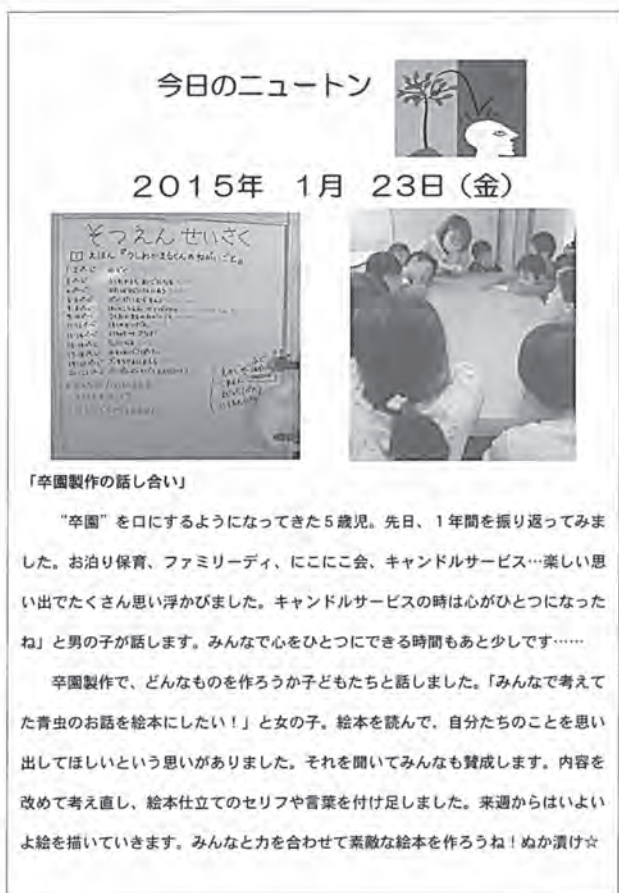 今日のニュートン
2015年 1月 23日（金）
そつえん せいさく
「卒園製作の話し合い」
“卒園”を口にするようになってきた5歳児。先日、1年間を振り返ってみま
した。お泊り保育、ファミリーディ、にこにこ会、キャンドルサービス…楽しい思
い出でたくさん思い浮かびました。キャンドルサービスの時は心がひとつになった
ね」と男の子が話します。みんなで心をひとつにできる時間もあと少しです……
卒園製作で、どんなものを作ろうか子どもたちと話しました。「みんなで考えて
た青虫のお話を絵本にしたい！」と女の子。絵本を読んで、自分たちのことを思い
出してほしいという思いがありました。それを聞いてみんなも賛成します。内容を
改めて考え直し、絵本仕立てのセリフや言葉を付け足しました。来週からはいよい
よ絵を描いていきます。みんなと力を合わせて素敵な絵本を作ろうね！ぬか漬け☆